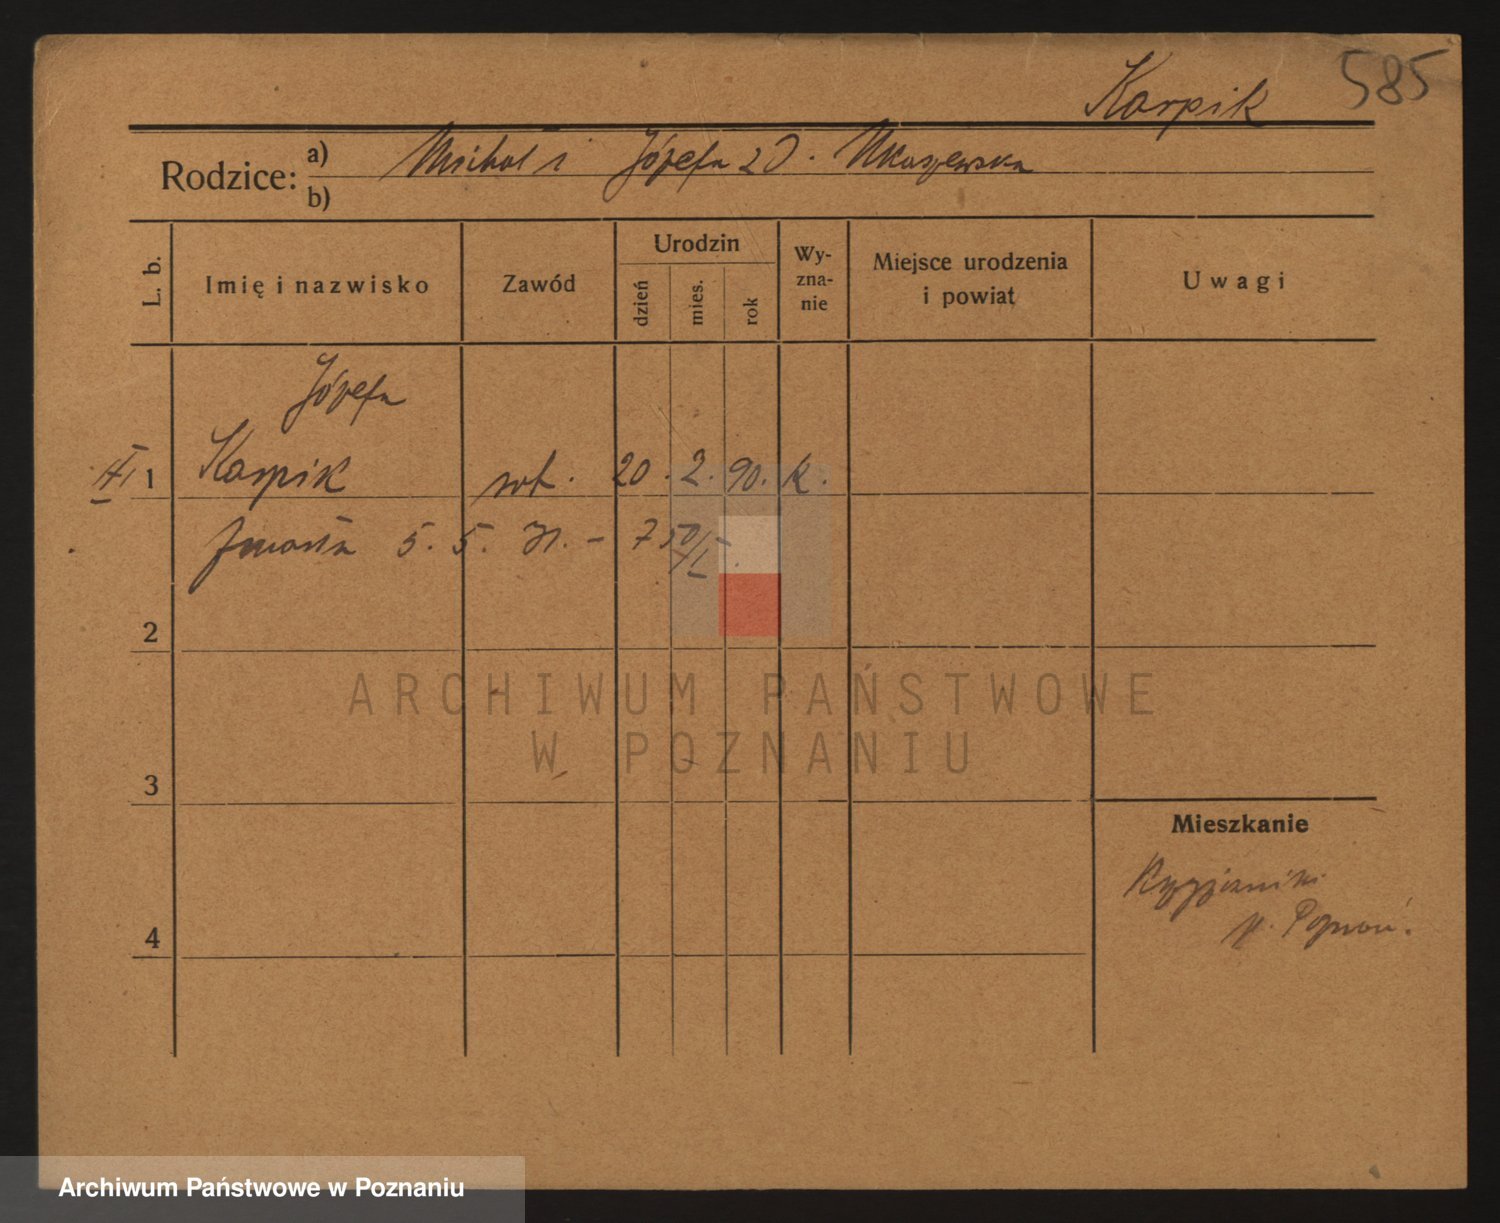 585
Karpik
Rodzice: a) Michał i Józefa z D.
b)
L. b.
Imię i nazwisko
Zawód
Urodzin
dzień
mies.
rok
Wy-
zna-
nie
Miejsce urodzenia
i powiat
Uwagi
Józefa
1 Karpik rob. 20. 2. 90. k.
zmarła 5. 5. 31. - 750/
2
3
4
Mieszkanie
p. Poznań.
ARCHIWUM PAŃSTWOWE
W POZNANIU
Archiwum Państwowe w Poznaniu